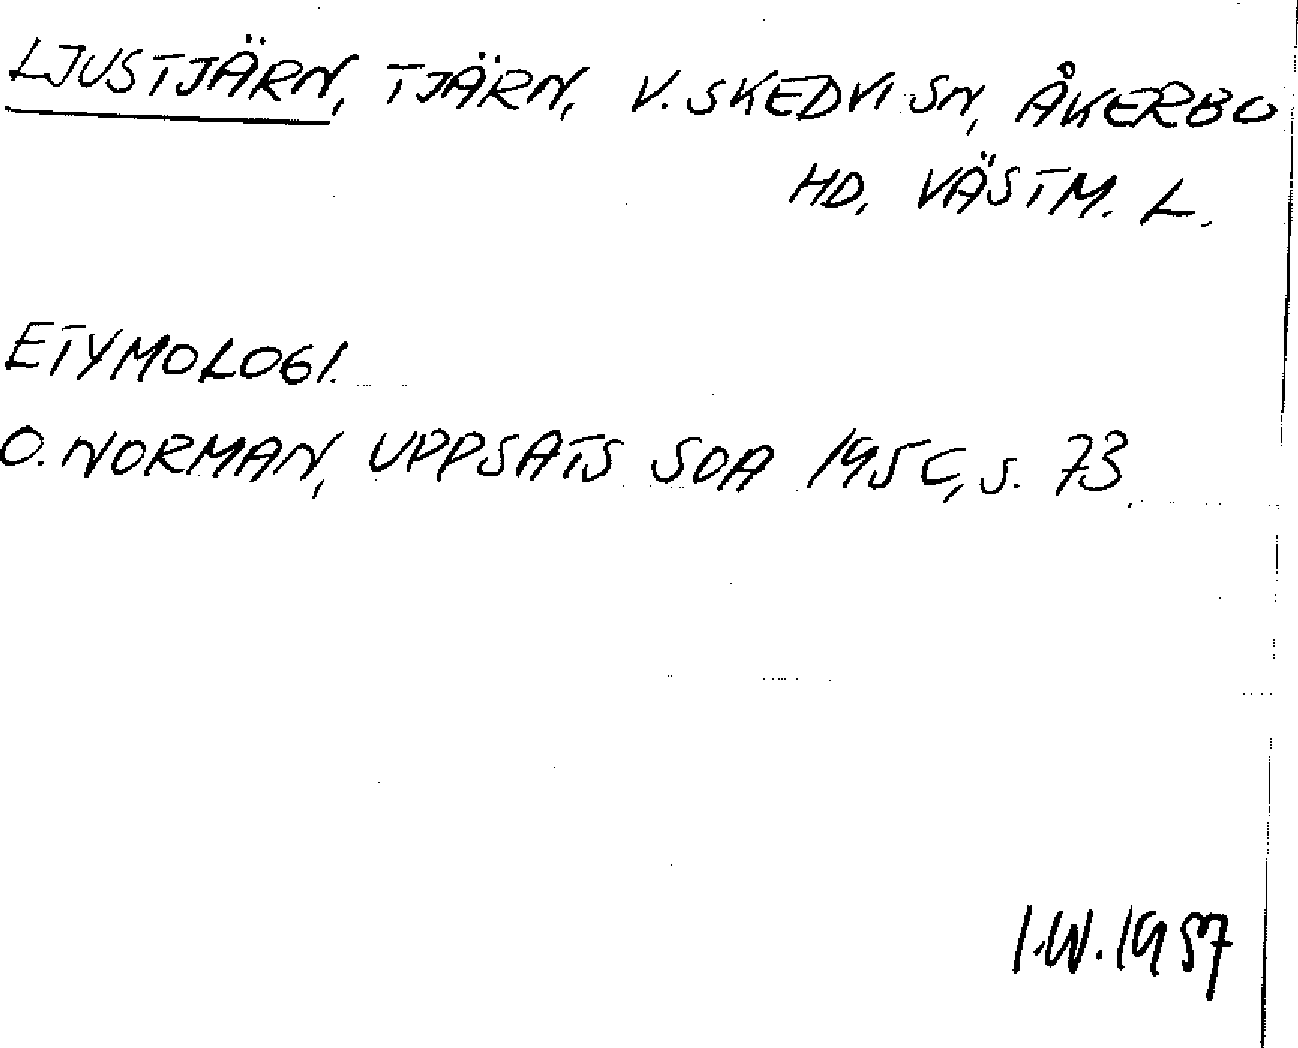 LJUSTJÄRN, TJÄRN, V. SKEDVI SN, ÅKERBO
HD, VÄSTM. L.
ETYMOLOGI.
O. NORMAN, UPPSATS SOA 1956, S. 73.
I.W. 1957